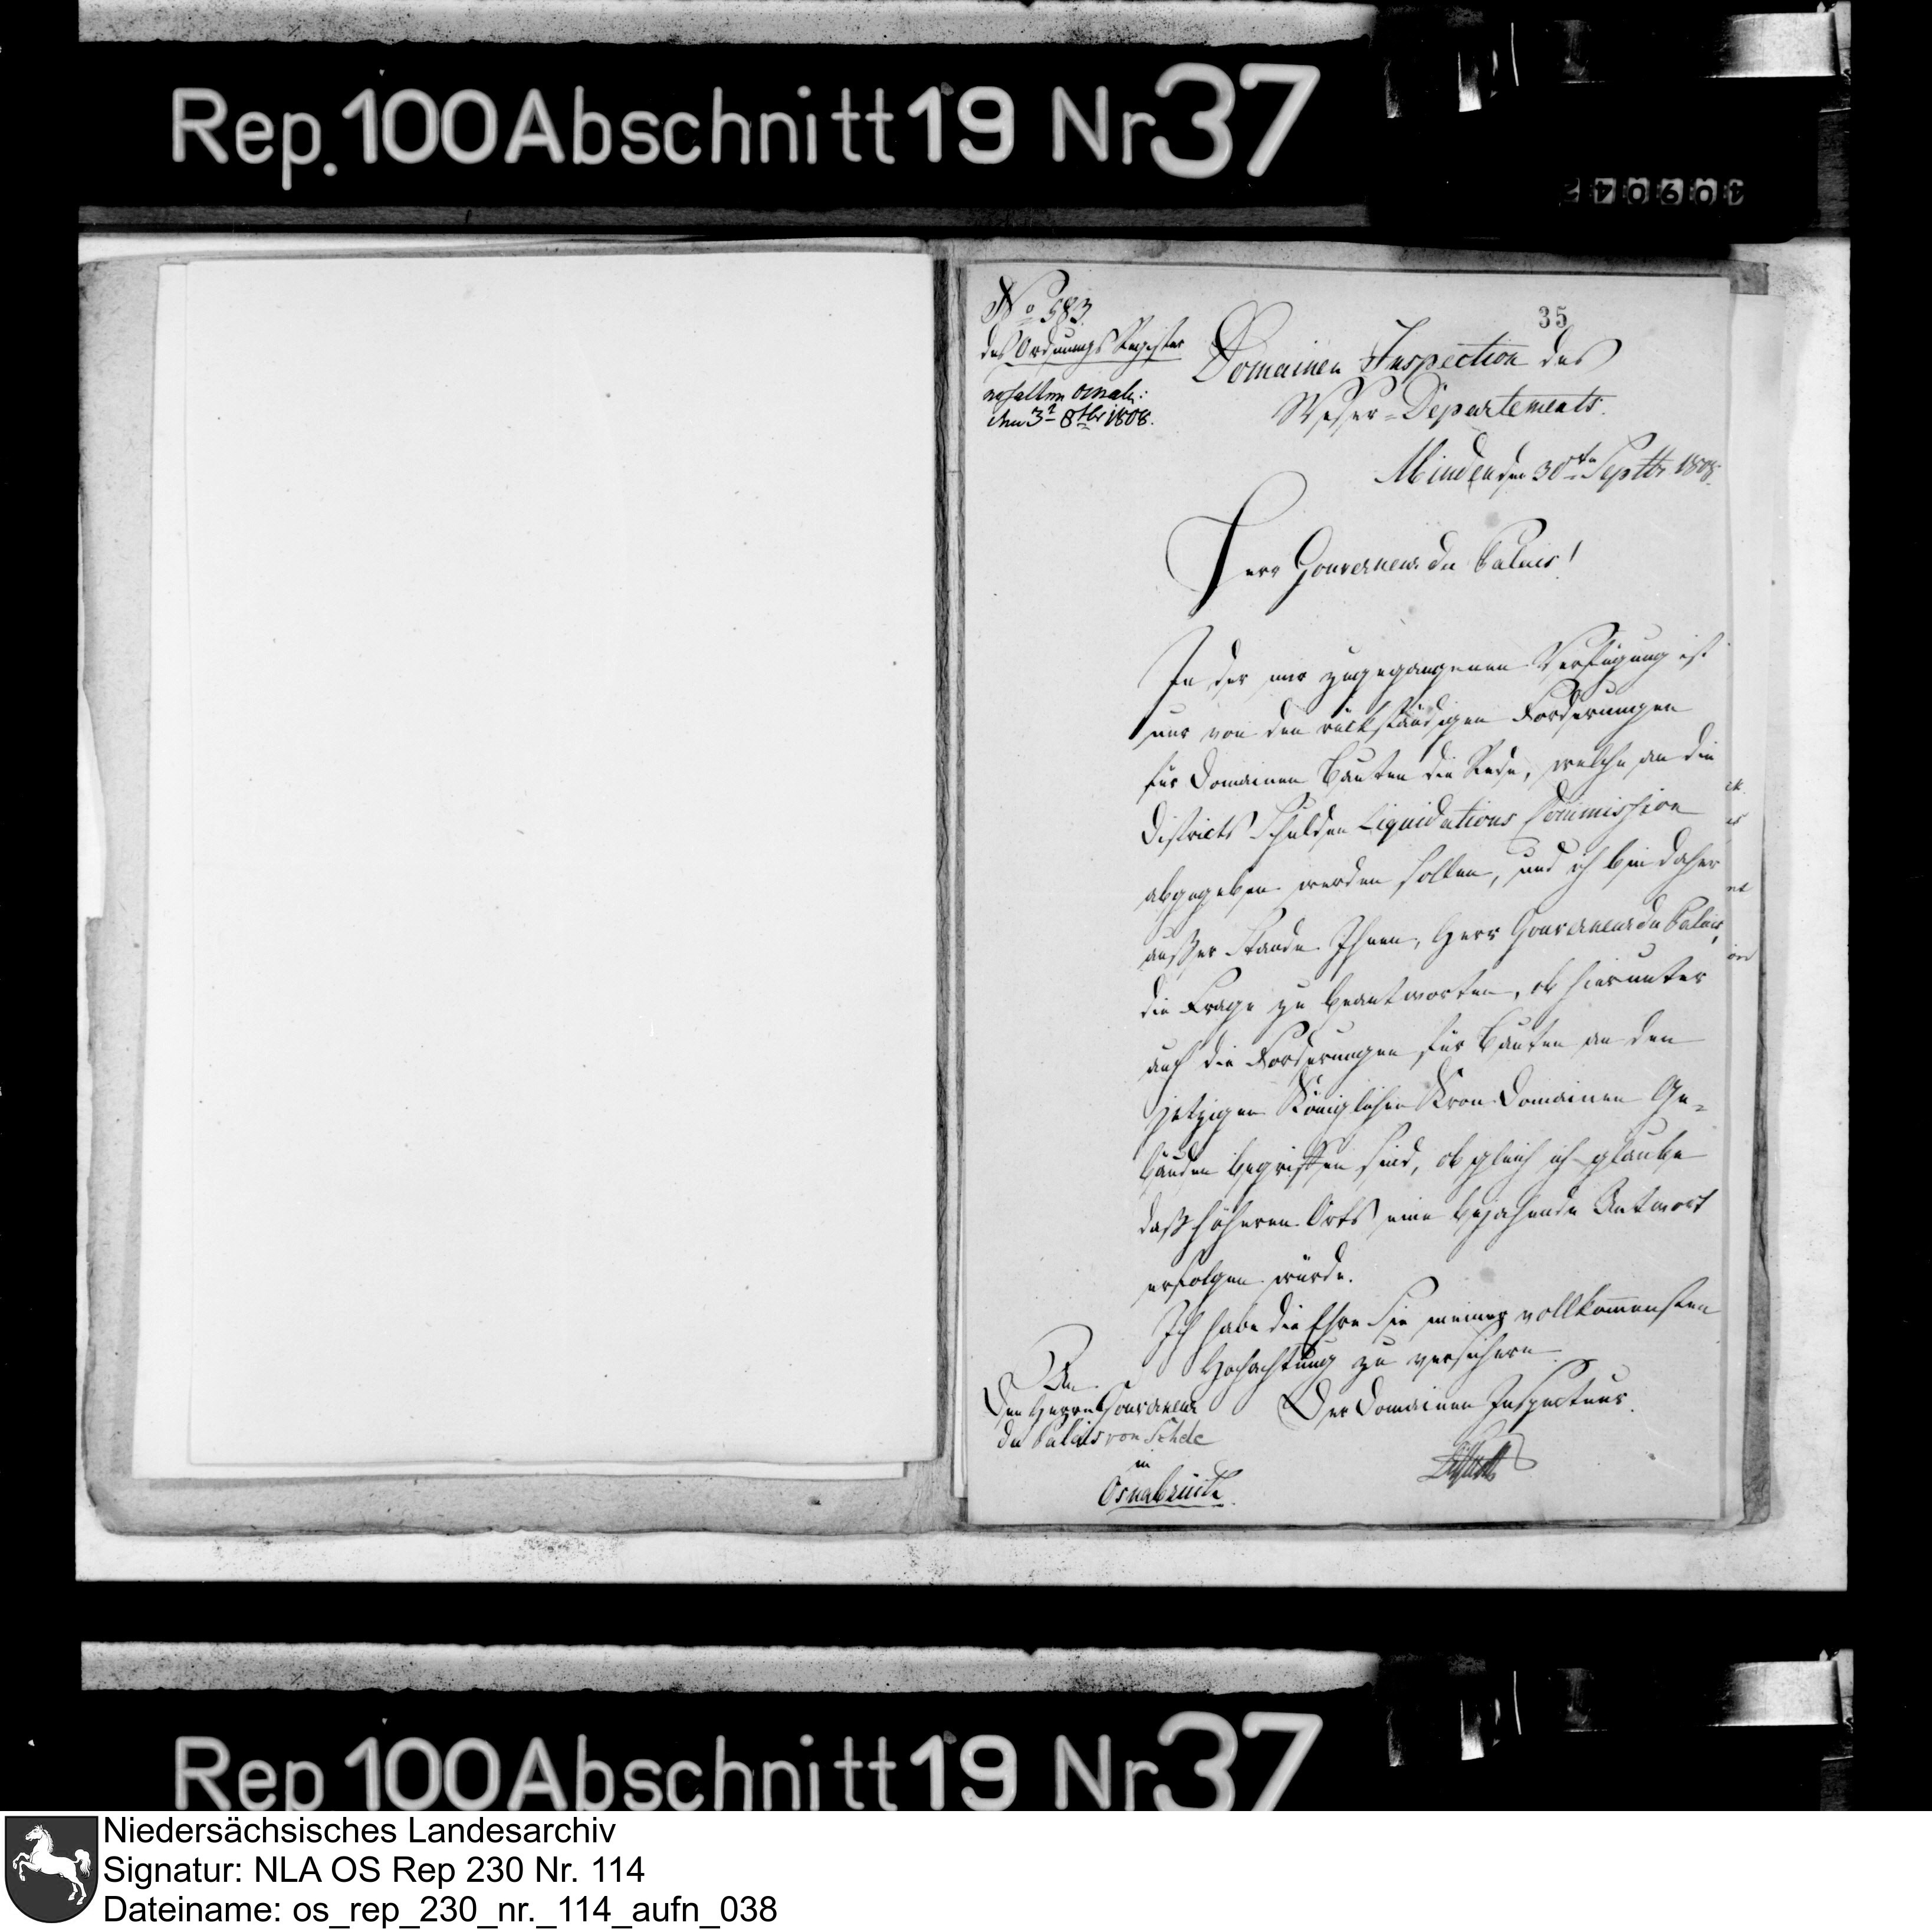 Rep. 100 Abschnitt 19 Nr 37
40904
35
No 583.
des Ordnungs Register
erhalten Osnab:
den 3t 8tbr 1808.
Domainen Inspection des
Weser-Departements.
Minden den 30ten Septbr 1808.
Herr Gouverneur du Palais!
In der mir zugegangenen Verfügung ist
nur von den rückständigen Forderungen
für Domainen Bauten die Rede, welche an die
Districts Schulden Liquidations Commission
abgegeben werden sollen, und ich bin daher
außer Stande Ihnen, Herr Gouverneur du Palais,
die Frage zu beantworten, ob hierunter
auch die Forderungen für Bauten an den
jetzigen Königlichen Kron Domainen Ge-
bäuden begriffen sind, ob gleich ich glaube
daß höheren Orts eine bejahende Antwort
erfolgen würde.
Ich habe die Ehre Sie meiner vollkommensten
Hochachtung zu versichern.
Der Domainen Inspecteur.
An
Den Herrn Gouverneur
du Palais von Schele
in
Osnabrück.
Rep 100 Abschnitt 19 Nr 37
Niedersächsisches Landesarchiv
Signatur: NLA OS Rep 230 Nr. 114
Dateiname: os_rep_230_nr._114_aufn_038